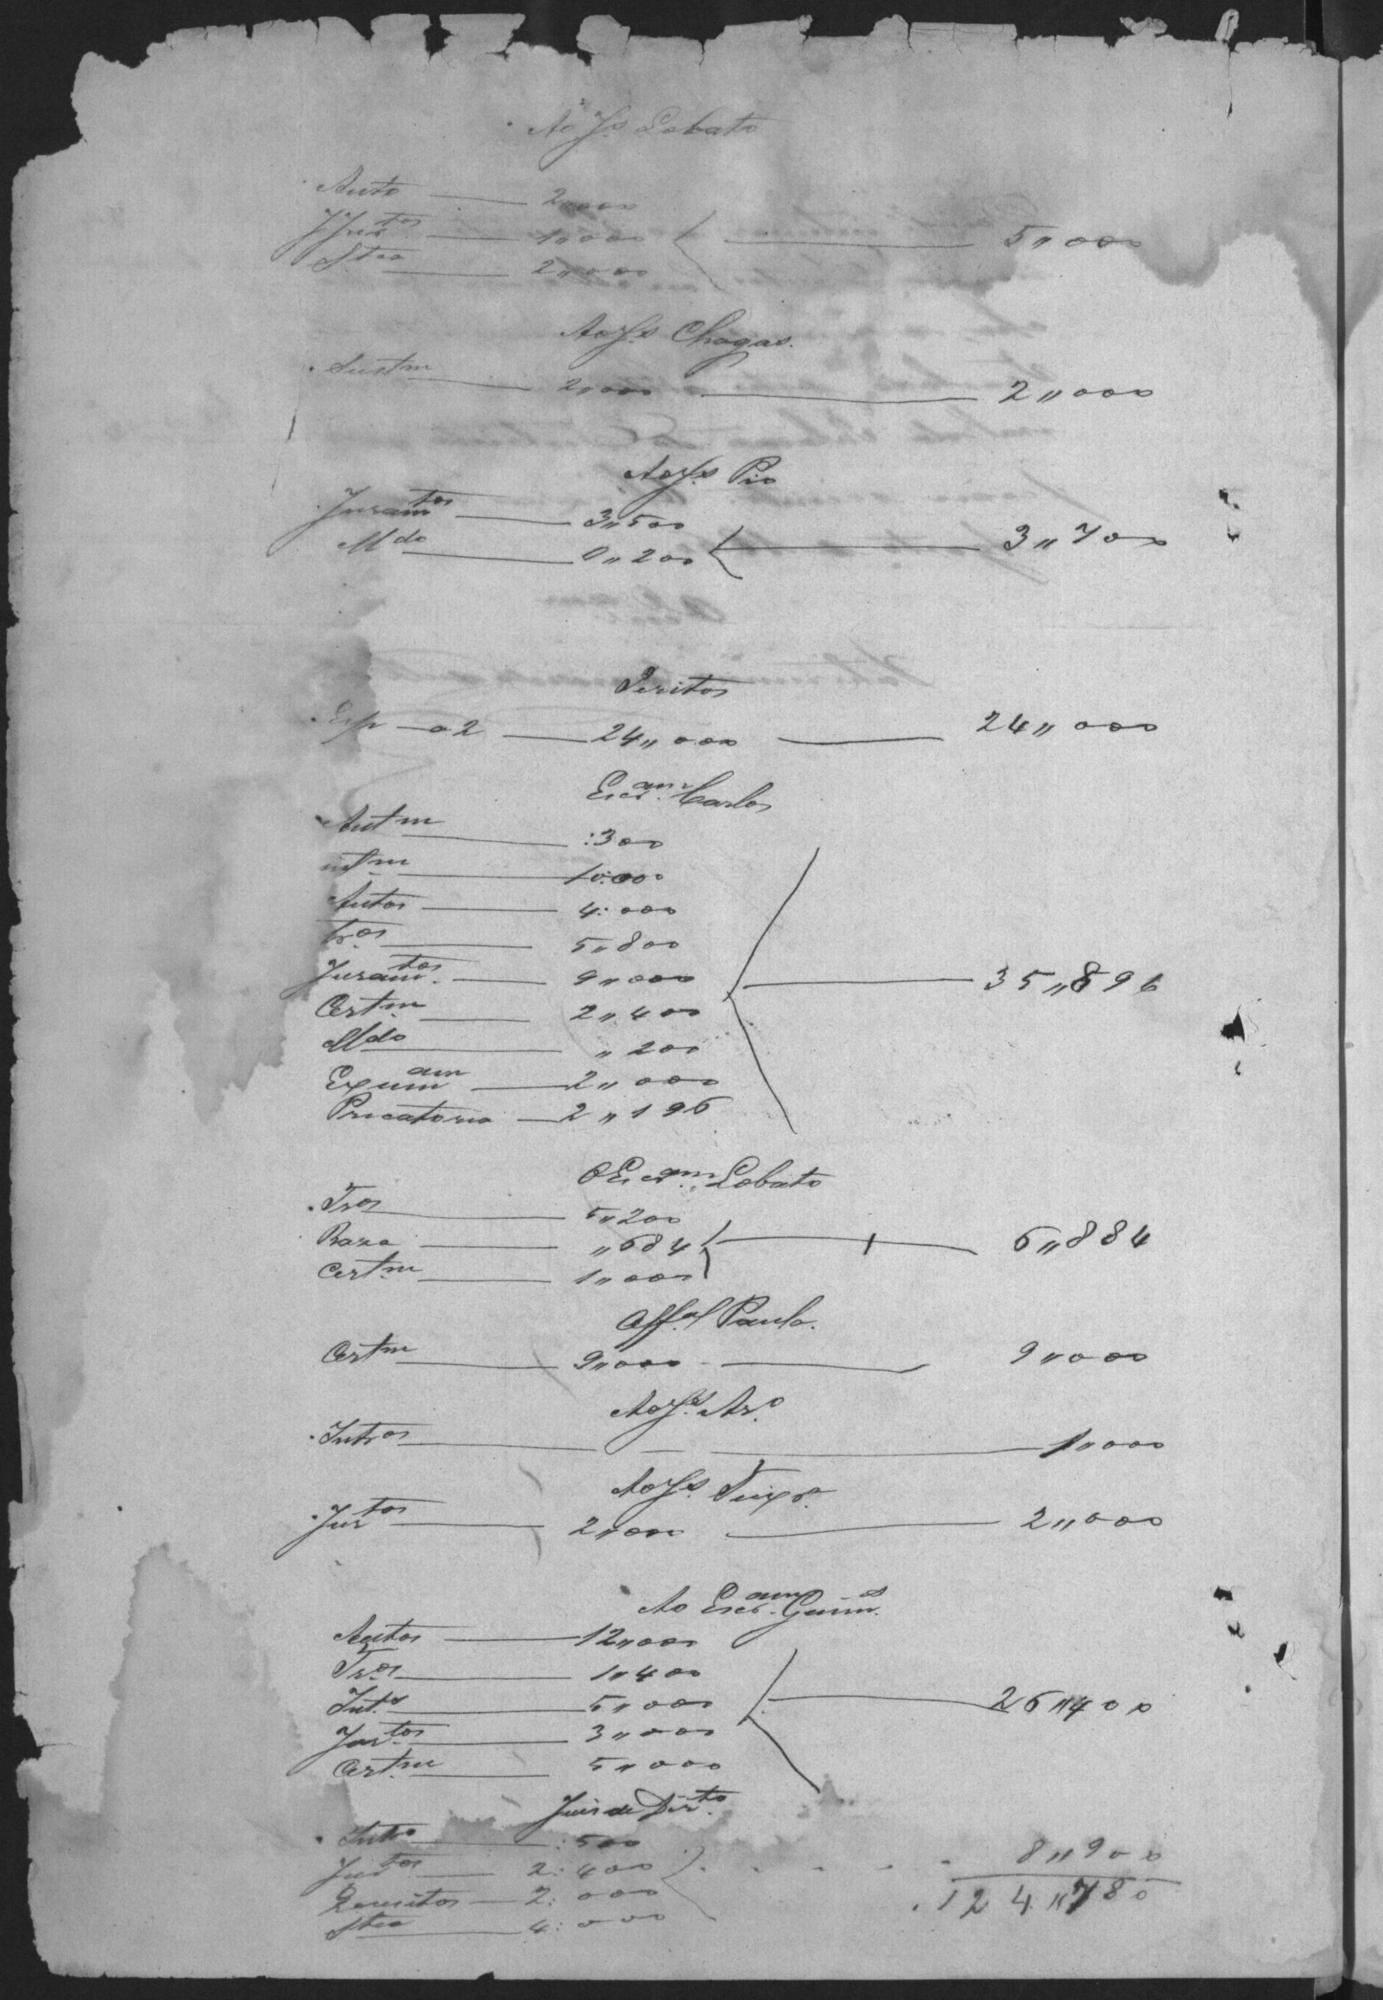 Ao Js Lobato
Auto — 2"000
Jurtos — 1"000 — 5"000
Stca — 2"000
Ao Js Chagas.
Sustm — 2"000 — 2"000
Ao Js Pio
Juramtos — 3"500
Mdo — 0"200 — 3"700
Peritos
a 2 — 24"000 — 24"000
Escram Carlos
Autm — :300
intm — 10:000
Autos — 4:000
tros — 5"800
Juramtos. — 9"000 — 35"896
Certm — 2"400
Mdo — "200
Exumam — 2"000
Precatoria — 2"196
O Escram Lobato
Tros — 5"200
Raza — "684 — 6"884
Certm — 1"000
Offal Paulo.
Certm — 9"000 — 9"000
Ao Js Aro.
Intros — 1"000
Ao Js Teixra.
Jurtos — 2"000 — 2"000
Ao Escram Guims.
Autos — 12"000
Tros — 1"400
Ints — 5"000 — 26"400
Jurtos — 3"000
Certm — 5"000
Juis de Dirto.
Intro — :500
Jurtos — 2:400 — 8"900
Quesitos — 2:000 — 124"780
Stca — 4:000